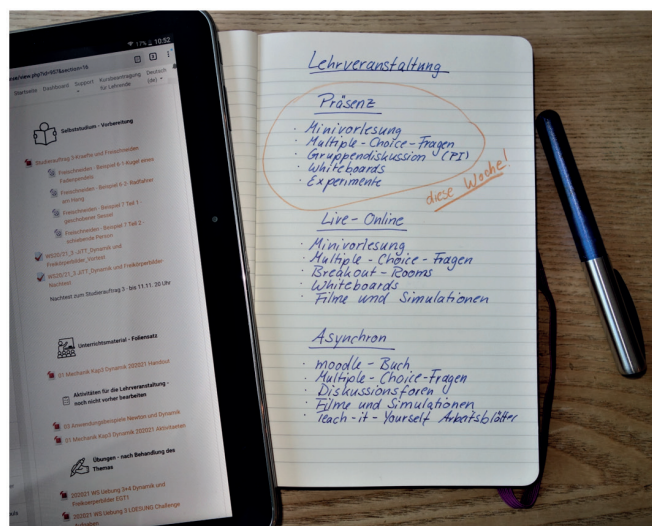 17% 10:52
se/view.php?id=957&section=16
Startseite Dashboard Support Kursbeantragung für Lehrende Deutsch (de)
Selbststudium - Vorbereitung
Studierauftrag 3 Kraefte und Freischneiden
Freischneiden - Beispiel 6-1 Kugel eines
Fadenpendels
Freischneiden - Beispiel 6-3- Radfahrer
am Hang
Freischneiden - Beispiel 7 Teil 1 -
geschobener Sessel
Freischneiden - Beispiel 7 Teil 2 -
schiebende Person
WS20/21_3 -JiTT_Dynamik und
Freikörperbilder_Vortest
WS20/21_3 JiTT_Dynamik und Freikörperbilder
Nachtest
Nachtest zum Studierauftrag 3 - bis 11.11. 20 Uhr
Unterrichtsmaterial - Foliensatz
01 Mechanik Kap3 Dynamik 202021 Handout
Aktivitäten für die Lehrveranstaltung -
noch nicht vorher bearbeiten
03 Anwendungsbeispiele Newton und Dynamik
01 Mechanik Kap3 Dynamik 202021 Aktivitaeten
Übungen - nach Behandlung des
Themas
202021 WS Uebung 3+4 Dynamik und
Freikoerperbilder EGT1
202021 WS Uebung 3 LOESUNG Challenge
Lehrveranstaltung
Präsenz
· Minivorlesung
· Multiple-Choice-Fragen
· Gruppendiskussion (PI)
· Whiteboards
· Experimente
diese Woche!
Live-Online
· Minivorlesung
· Multiple-Choice-Fragen
· Breakout-Rooms
· Whiteboards
· Filme und Simulationen
Asynchron
· moodle-Buch
· Multiple-Choice-Fragen
· Diskussionsforen
· Filme und Simulationen
· Teach-it-Yourself Arbeitsblätter